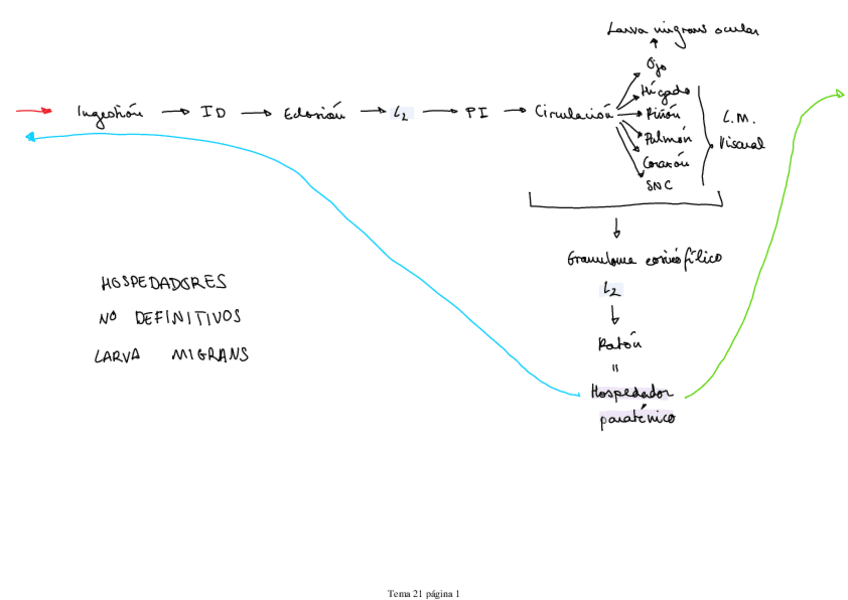 Larva migrans ocular
Ojo
Hígado
Ingestión → ID → Eclosión → L2 → PI → Circulación
Riñón
L.M.
Visceral
Pulmón
Corazón
SNC
Granuloma eosinófilico
L2
Ratón
"
Hospedador
paraténico
HOSPEDADORES
NO DEFINITIVOS
LARVA MIGRANS
Tema 21 página 1